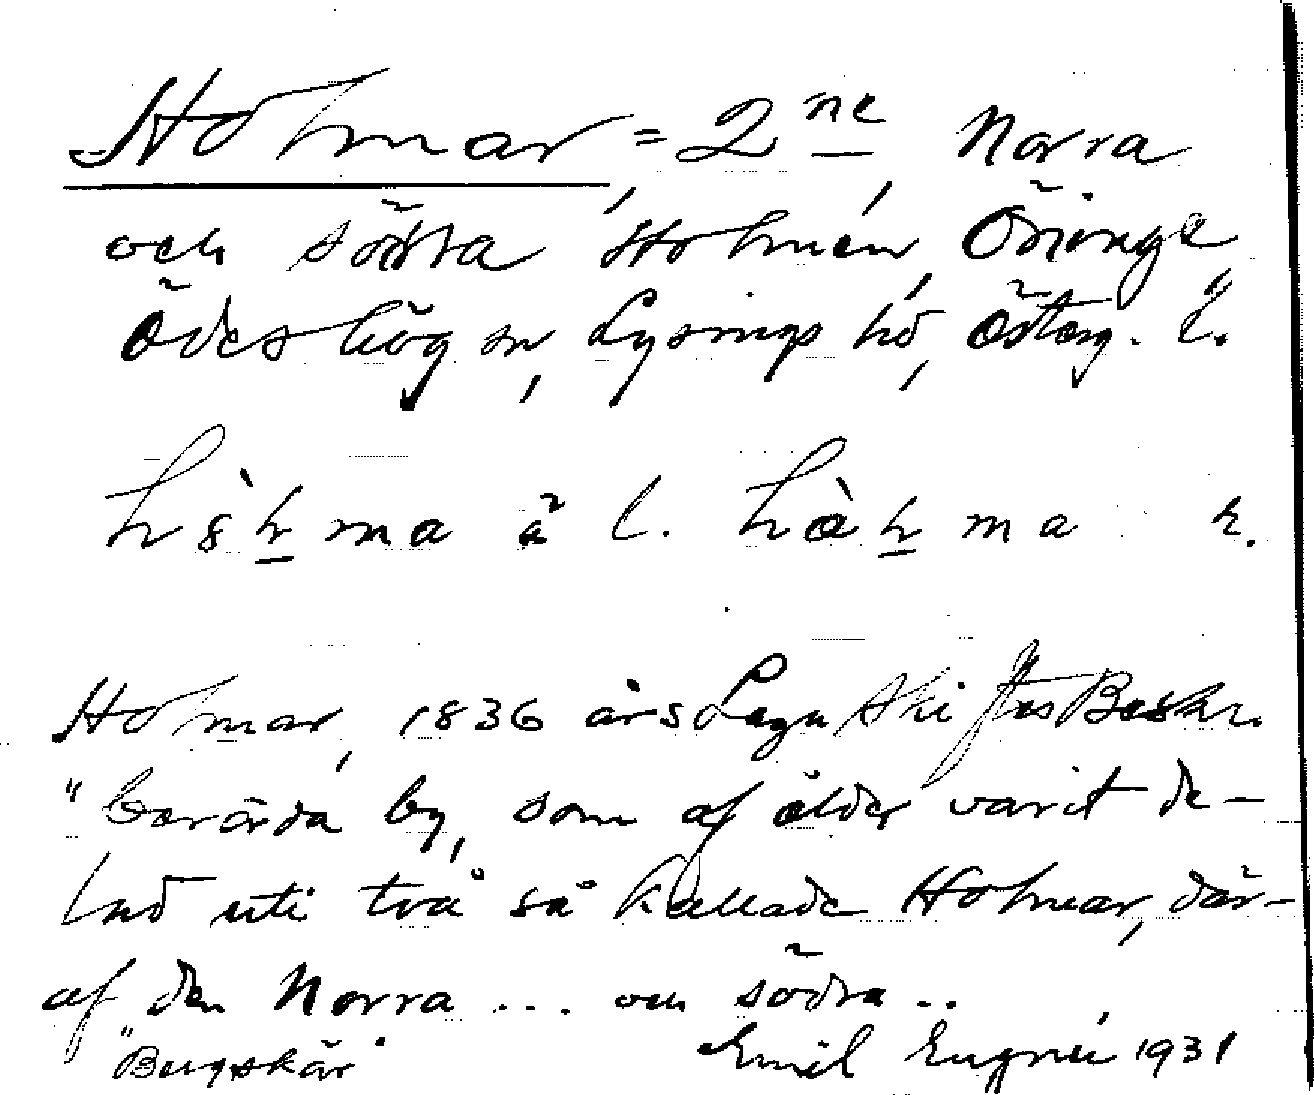 Holmar, = 2 ne, Norra
och södra Holmen, Öninge
Ödeshög sn, Lysings hd, Österg. l.
ma l. ma r.
Holmar, 1836 års Laga Skiftes Beskr.
"berörda by, som af ålder varit de-
lad uti två så kallade Holmar, där-
af den Norra ... och södra ..
"Bergskär" Emil 1931